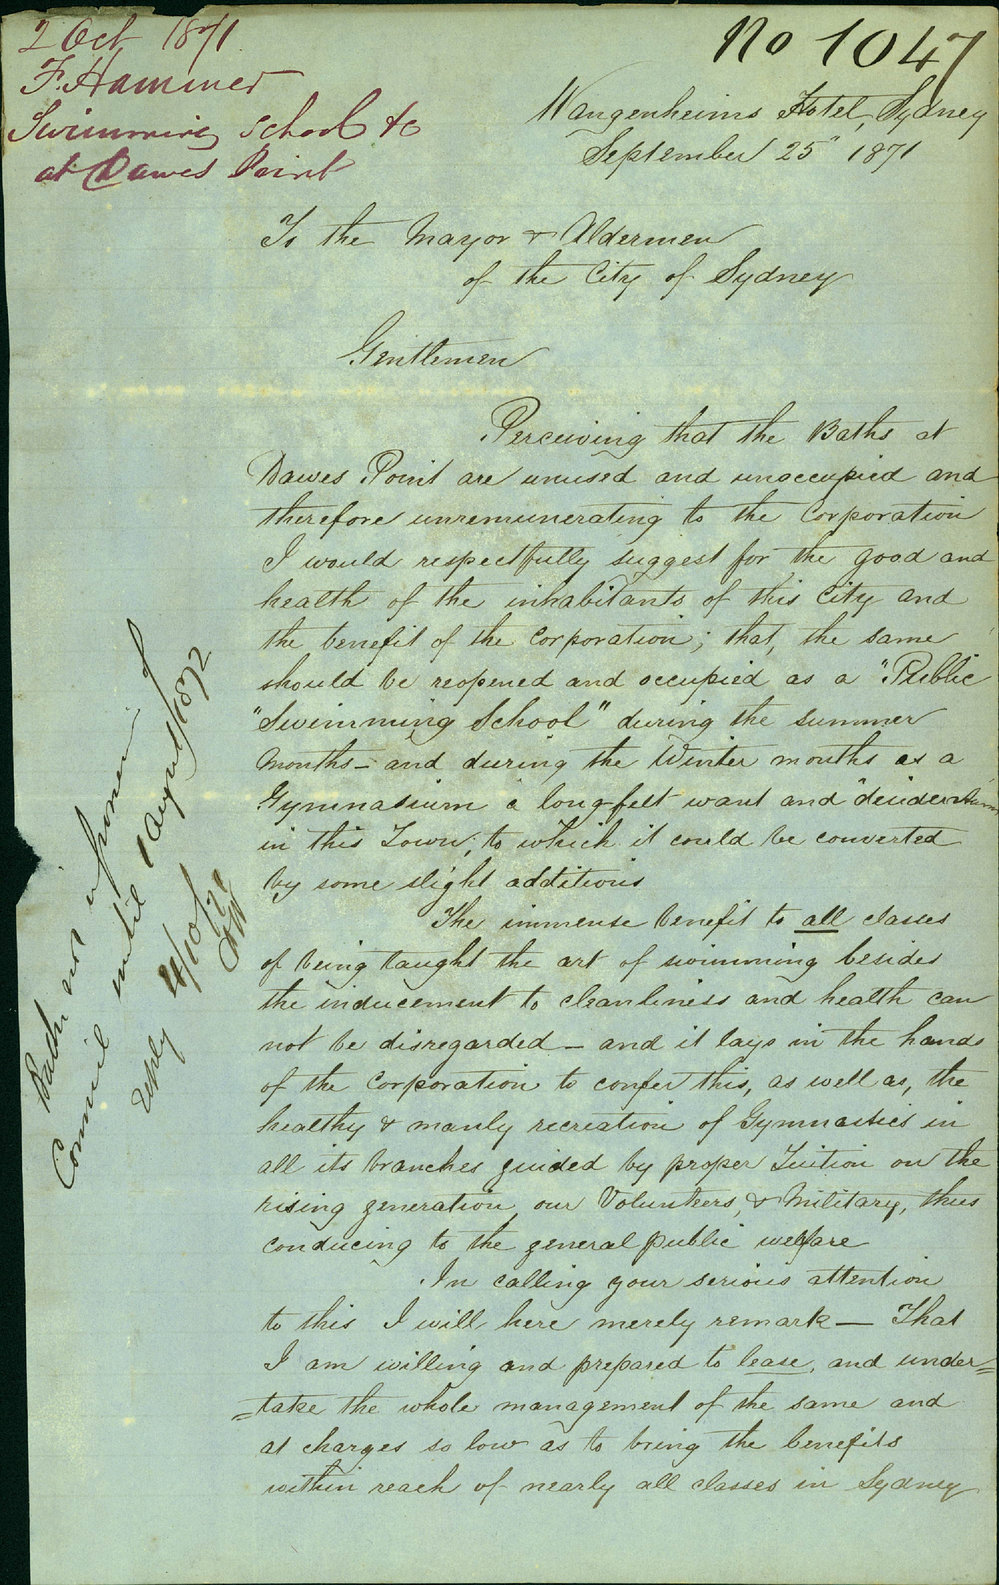 2 Oct 1871
F. Hammer
Swimming School &c
at Dawes Point
No 1047
Wangenheims Hotel, Sydney
September 25" 1871
To the Mayor & Aldermen
of the City of Sydney
Gentlemen
Perceiving that the Baths at
Dawes Point are unused and unoccupied and
therefore unremunerating to the Corporation
I would respectfully suggest for the good and
health of the inhabitants of this City and
the benefit of the Corporation; that, the same
should be reopened and occupied as a "Public
"Swimming School" during the summer
months – and during the Winter months as a
Gymnasium a long-felt want and
in this Town; to which it could be converted
by some slight additions
The immense benefit to all classes
of being taught the art of swimming besides
the inducement to cleanliness and health can
not be disregarded – and it lays in the hands
of the Corporation to confer this, as well as, the
healthy & manly recreation of Gymnastics in
all its branches guided by proper Tuition on the
rising generation, our Volunteers, & Military, thus
conducing to the general public welfare
In calling your serious attention
to this I will here merely remark – That
I am willing and prepared to lease, and under=
=take the whole management of the same and
at charges so low as to bring the benefits
within reach of nearly all classes in Sydney
Baths not in possession of
Council until 1 August 1872
Reply 4/10/71